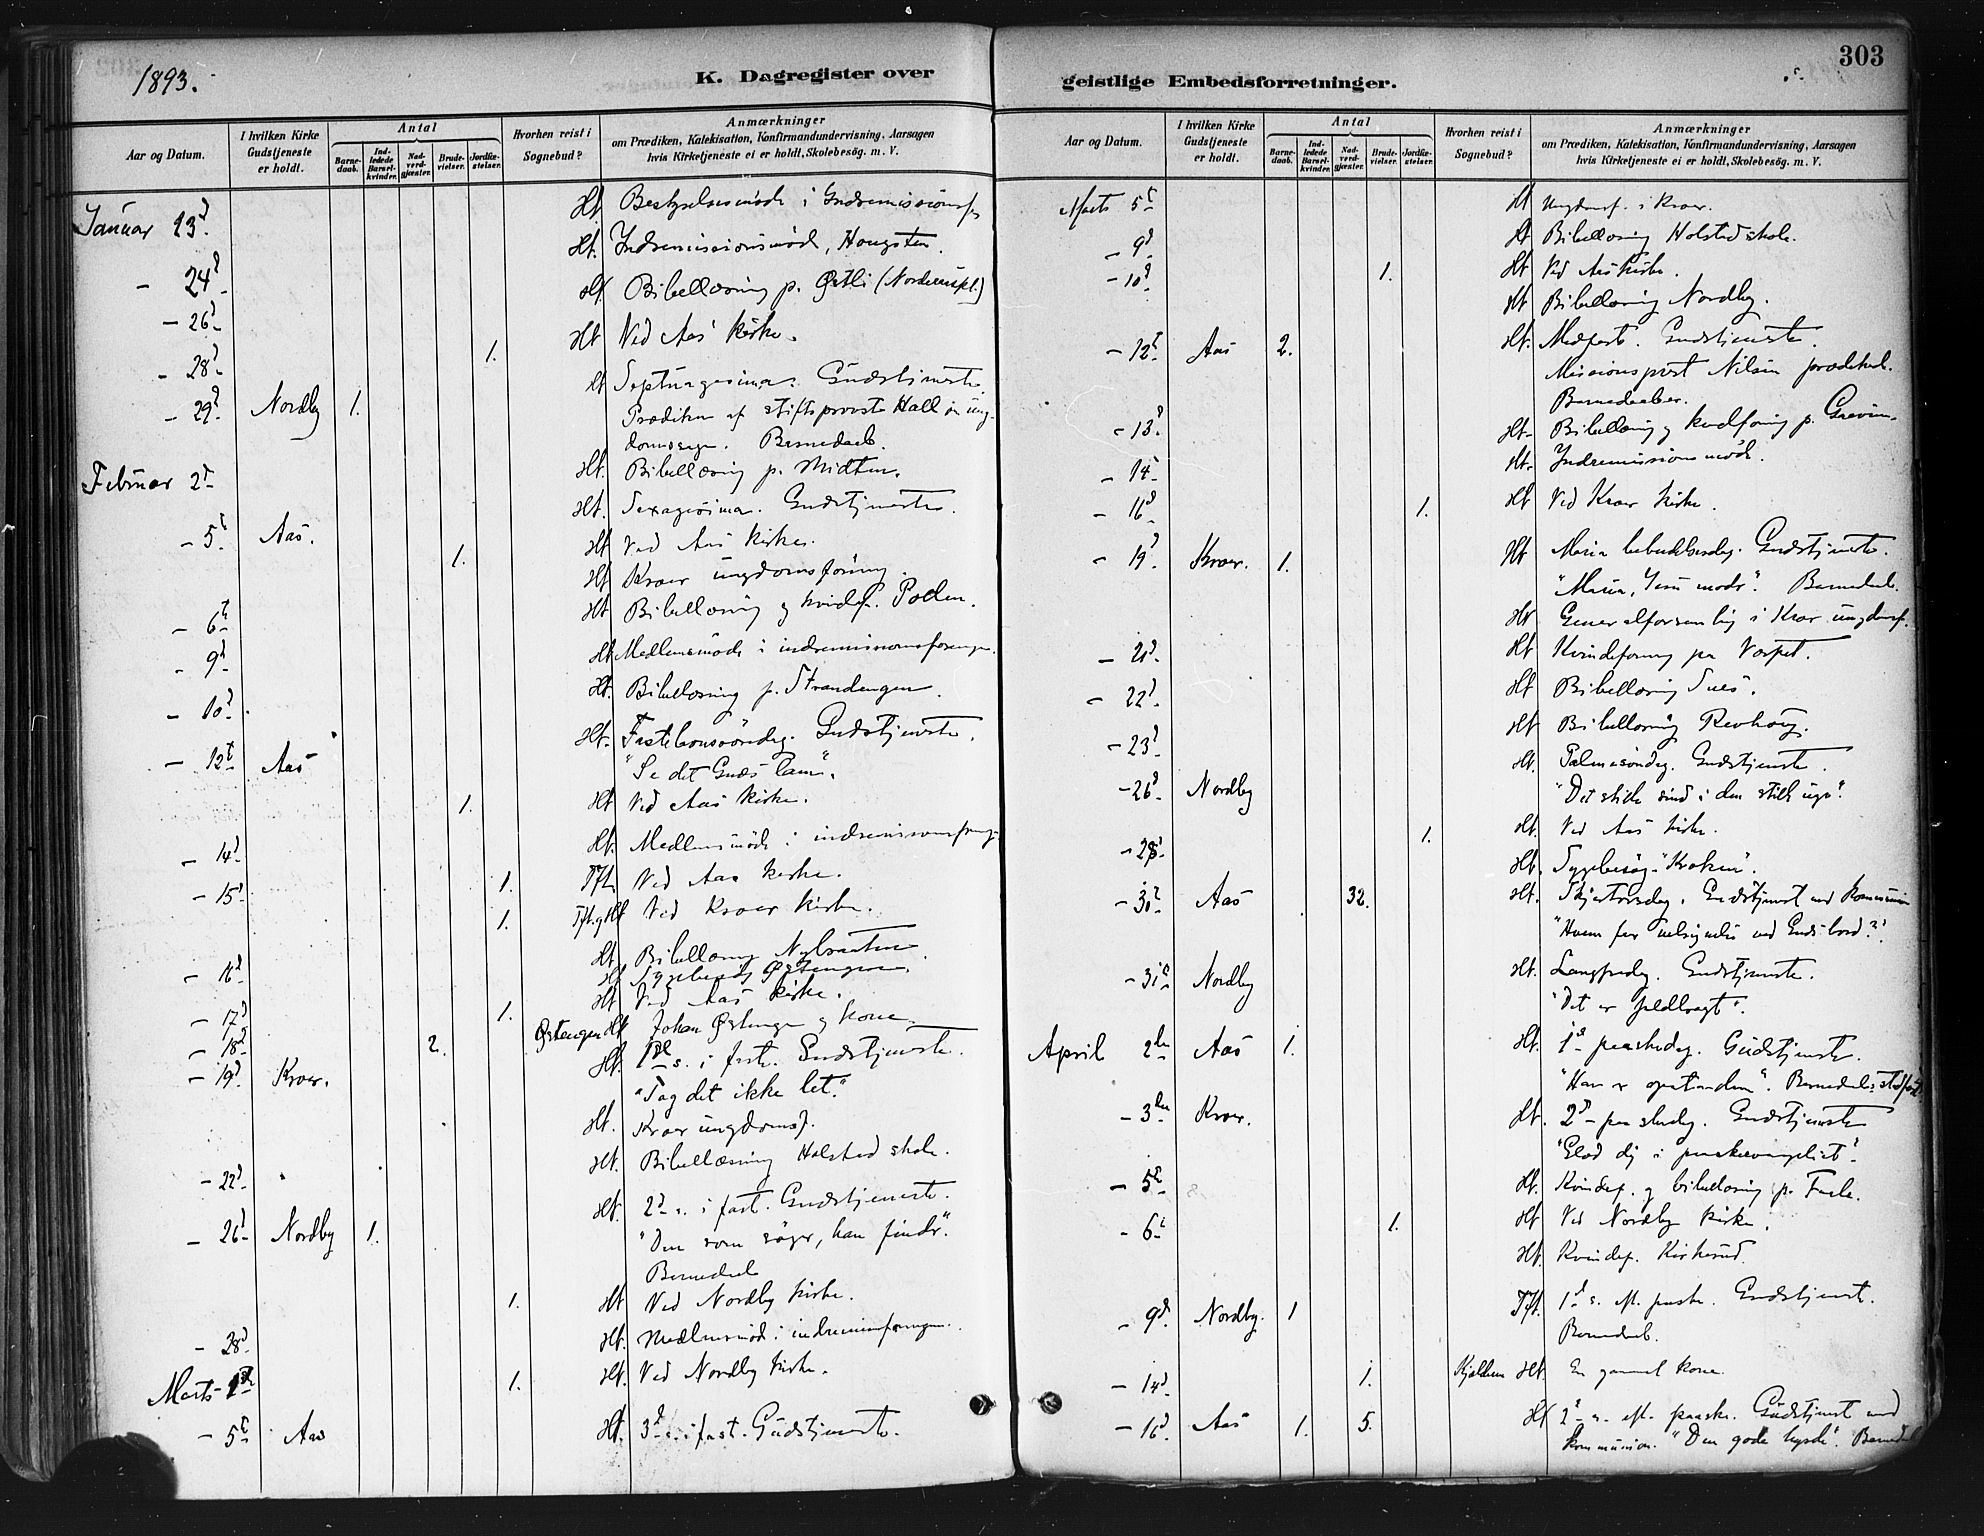 1893.
K. Dagregister over
Aar og Datum.
I hvilken Kirke Gudstjeneste er holdt.
Antal
Barnedaab.
Indledede Barselkvinder.
Nadverdgjæster.
Brudevielser.
Jordfæstelser.
Hvorhen reist i Sognebud?
Anmærkninger
om Prædiken, Katekisation, Konfirmandundervisning, Aarsagen
hvis Kirketjeneste ei er holdt, Skolebesög. m. V.
Januar 23d Ht Bestyrelsesmöde i Indremissionsf.
Ht. Indremissionsmöde, Haugsten.
- 24d Ht Bibellæsning p. Østli
- 26d 1. Ht Ved Aas kirke.
- 28d
- 29d Nordby 1. Ht Septuagesima. Gudstjeneste.
Prædiken af stiftsprovst Hall om ung-
domssagen. Barnedaab.
Februar 2d Ht. Bibellæsning p. Midten.
- 5t Aas. Ht. Sexagesima. Gudstjeneste.
1. Ht Ved Aas kirke.
Ht Kroer ungdomsforening.
- 6t Ht Bibellæsning g kvindef. Pollen.
- 9d Ht Medlemsmöde i indremissionsforeningen.
- 10d Ht. Bibellæsning p. Strandengen.
- 12t Aas Ht. Fastelavnssöndag. Gudstjeneste.
"Se det Guds lam".
1. Ht Ved Aas kirke.
- 14d Ht. Medlemsmöde i indremissionsforening
- 15d 1. Tft. Ved Aas kirke.
1. Tft. g Ht Ved Kroer kirke.
- 16d Ht Bibellæsning Nybraaten.
Ht Sygebesög Østengen.
- 17d 1. Ht Ved Aas kirke.
- 18d 2. Østengen Ht Johan Østengen g kone.
- 19d Kroer. Ht. 1ste s. i faste. Gudstjeneste.
"Tag det ikke let."
Ht. Kroer ungdomsf.
- 22d Ht. Bibellæsning Holstad skole.
- 26d Nordby 1. Ht. 2d s. i fast. Gudstjeneste.
"Den som söger, han finder."
Barnedaab
1. Ht Ved Nordby kirke.
- 28d Ht. Medlemsmöde i indremissionsforeningen.
Marts 1. Ht. Ved Nordby kirke.
- 5t Aas Ht. 3d s. i fast. Gudstjeneste.
303
geistlige Embedsforretninger.
Aar og Datum.
I hvilken Kirke Gudstjeneste er holdt.
Antal
Barnedaab.
Indledede Barselkvinder.
Nadverdgjæster.
Brudevielser.
Jordfæstelser.
Hvorhen reist i Sognebud?
Anmærkninger
om Prædiken, Katekisation, Konfirmandundervisning, Aarsagen
hvis Kirketjeneste ei er holdt, Skolebesög. m. V.
Marts 5t Ht Ungdomsf. i Kroer.
- 9d Ht Bibellæsning Holstad skole.
- 10d 1. Ht Ved Aas kirke.
Ht Bibellæsning Nordby.
- 12t Aas 2. Ht. Midfast. Gudstjeneste.
Missionsprest Nilsen prædiked.
Barnedaaber.
- 13d Ht. Bibellæsning g kvdforning p.
- 14 Ht. Indremissionsmöde.
- 16d 1. Ht Ved Kroer kirke.
- 19d Kroer. 1. Ht Maria bebudelsesdag. Gudstjeneste.
"Maria, Jesu moder". Barnedaab.
Ht Generalforsamling i Kroer ungdomsf.
- 21d Ht Kvindeforning paa Varpet.
- 22d Ht Bibellæsning Sues.
- 23d Ht Bibellæsning Revhaug.
- 26d Nordby Ht. Palmesöndag. Gudstjeneste.
"Det stille sind i den stille uge".
1. Ht. Ved Aas kirke.
- 28d Ht. Sygebesög "Kroken".
- 30t Aas 32. Ht. Skjærtorsdag. Gudstjenest med kommunion
"Hvem faar velsignelse ved Guds bord?"
- 31te Nordby Ht. Langfredag. Gudstjeneste.
"Det er fuldbragt".
April 2den Aas 1. Ht. 1s paaskedag. Gudstjeneste.
"Han er opstanden". Barnedaabs stadfæst.
- 3die Kroer. Ht. 2d paaskedag. Gudstjeneste
"Glæd dig i paaskeevangeliet".
- 5te Ht. Kvindef. g bibellæsning p.
- 6te 1. Ht Ved Nordby kirke.
Ht. Kvindef. Kirkerud.
- 9d Nordby. 1 Tft. 1d s. eft. paaske. Gudstjeneste.
Barnedaab.
- 14d 1. Ht. En gammel kone.
- 16d Aas 1. 5. Ht 2d s. eft. paaske. Gudstjenest med
kommunion. "Den gode hyrde". Barnedaab